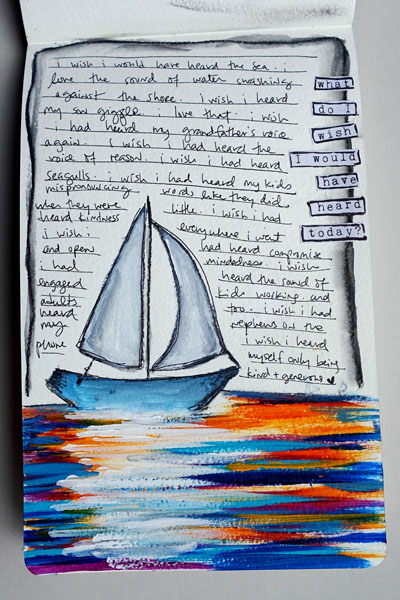 i wish i would have heard the sea. i
love the sound of water crashing
against the shore. i wish i heard
my son giggle. i love that. i wish
i had heard my grandfather's voice
again. i wish i had heard the
voice of reason. i wish i had heard
seagulls. i wish i had heard my kids
mispronouncing words like they did
when they were little. i wish i had
heard kindness everywhere i went
i wish i had heard compromise
and open mindedness. i wish
i had heard the sound of
engaged kids working and
adults too. i wish i had
heard nephews on the
my i wish i heard
phone myself only being
kind + generous
what
do I
wish
I would
have
heard
today?